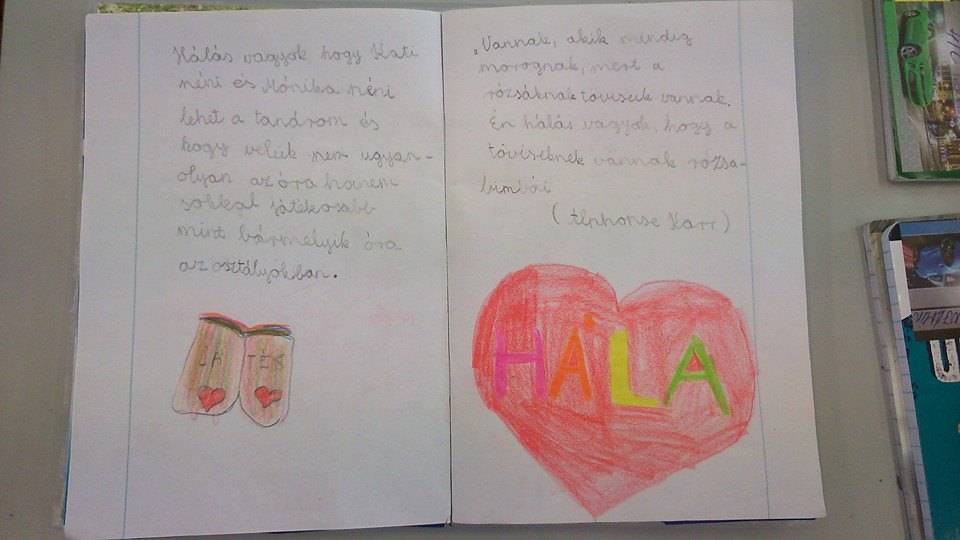 Hálás vagyok hogy Kati
néni és Mónika néni
lehet a tanárom és
hogy velük nem ugyan-
olyan az óra hanem
sokkal játékosabb
mint bármelyik óra
az osztályokban.
JÁ TÉK
„Vannak, akik mindig
morognak, mert a
rózsáknak töviseik vannak.
Én hálás vagyok, hogy a
töviseknek vannak rózsa-
bimbói
(Alphonse Karr)
HÁLA